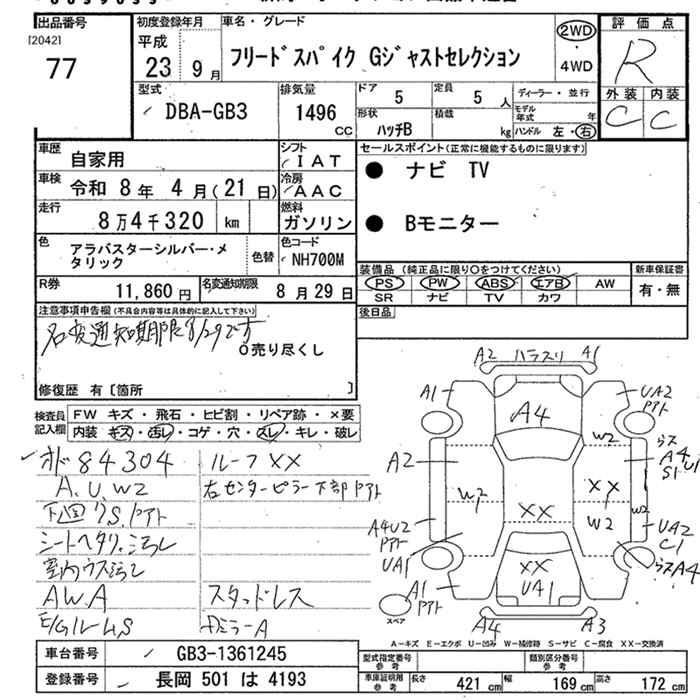 出品番号
[20421
77
初度登録年月
平成
23 年 9 月
車名・グレード
フリードスパイク Gジャストセレクション
2WD
・
4WD
評価点
R
外装 内装
C C
型式
DBA-GB3
排気量
1496
CC
ドア
5
定員
5 人
形状
ハッチB
積載
kg
ディーラー・並行
モデル年式 年
ハンドル 左・右
車歴
自家用
シフト
IAT
車検
令和 8年 4月(21日)
冷房
AAC
走行
8万4千320 km
燃料
ガソリン
色
アラバスターシルバー・メタリック
色替
色コード
NH700M
R券
11,860円
名変通知期限
8月29日
セールスポイント(正常に機能するものに限ります)
● ナビ TV
● Bモニター
装備品(純正品に限り○をつけてください)
PS PW ABS エアB AW
SR ナビ TV カワ
新車保証書
有・無
後日品
注意事項申告欄(不具合内容等は具体的に記入して下さい)
名変通知期限8/29です
○売り尽くし
修復歴 有〔箇所 〕
検査員記入欄
FW キズ・飛石・ヒビ割・リペア跡・×要
内装 キズ・汚レ・コゲ・穴・スレ・キレ・破レ
オド 84304
ルーフXX
A.U.W2
右センターピラー下部アト
下回りS.アト
シートヘタリ.汚レ
室内ウス汚レ
A W.A
スタッドレス
E/Gルーム S
DミラーA
A2 ハラスリ A1
A1
A4
UA2
アト
W2
ウス
A4
U1
S1
A2
W2
XX
XX
W2
W2
A4U2
アト
UA1
UA2
C1
XX
UA1
ウスA4
A1
アト
スペア
A4
A3
A−キズ E−エクボ U−凹み W−補修跡 S−サビ C−腐食 XX−交換済
車台番号
GB3-1361245
登録番号
長岡 501 は 4193
型式指定番号
参考
類別区分番号
参考
車庫証明用
参考
長さ 421 cm
幅 169 cm
高さ 172 cm